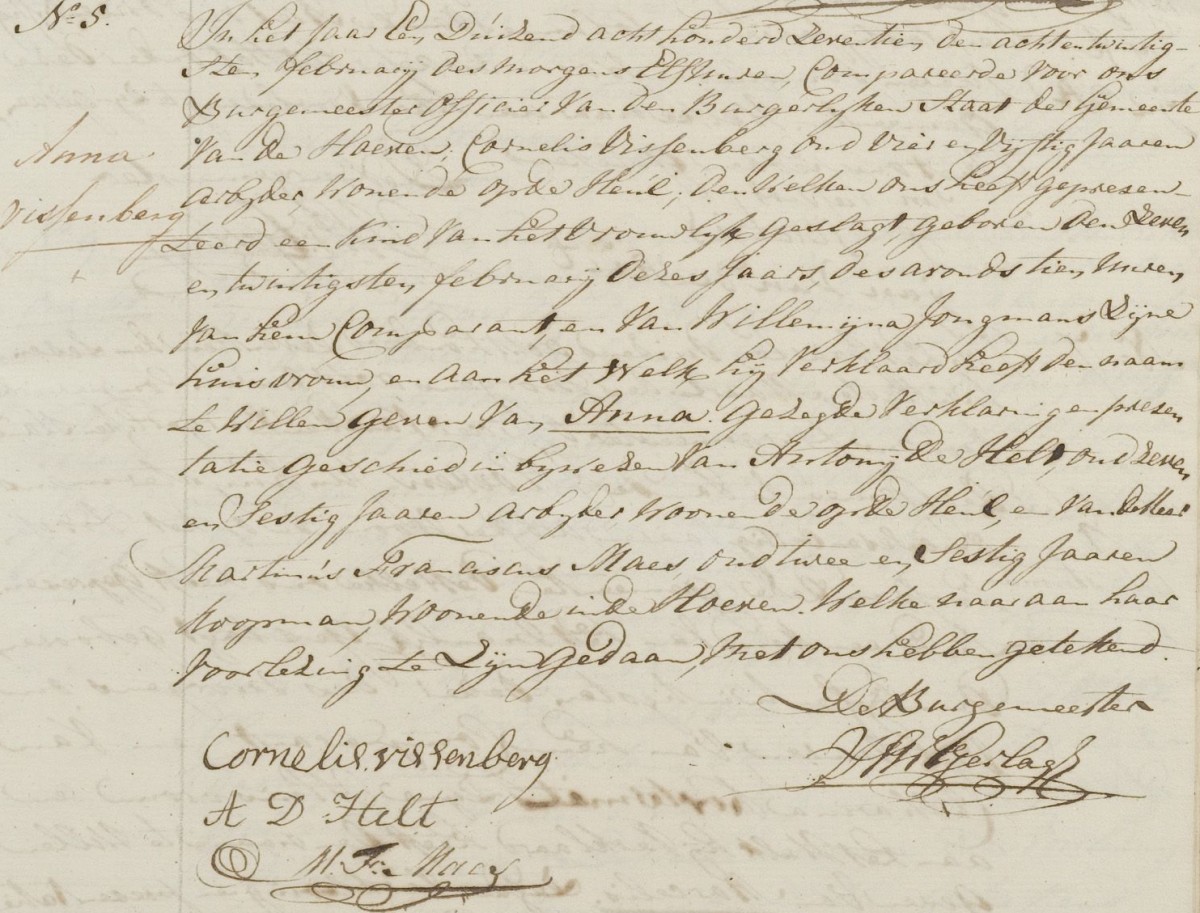 No. 5.
In het jaar Een Duizend acht honderd zeventien den achtentwintig-
sten februarij des morgens Elf Uuren, Compareerde voor ons
Burgemeester Officier van den Burgerlyken Staat der Gemeente
Van de Hoeven, Cornelis Vissenberg oud vier en Vyftig Jaaren
arbyder, wonende op de Heul, den welken ons heeft gepresen-
teerd een kind van het vrouwlyk geslagt, geboren den zeven
en twintigsten februarij dezes Jaars, des avonds tien uuren,
van hem Comparant, en van Willemijna Jongmans Zijne
huisvrouw, en aan het welk hij verklaard heeft den naam
te willen geven van Anna. gezegde verklaring en presen
tatie geschied in bywezen van Antonij De Helt, oud zeven
en Sestig Jaaren arbyder woonende op de Heul, en van de Heer
Martinus Franciscus Maes, oud twee en Sestig Jaaren
koopman, woonende in de Hoeven. Welke naar aan haar
voorlezing te zyn gedaan, met ons hebben getekend.
De Burgemeester
Anna
Vissenberg
Cornelis vissenberg
A D Helt
M. Fr. Maes